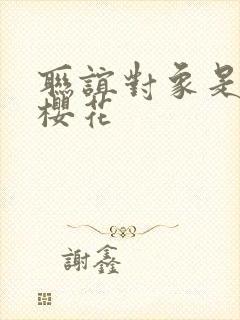 聯誼對象是
櫻花
謝鑫